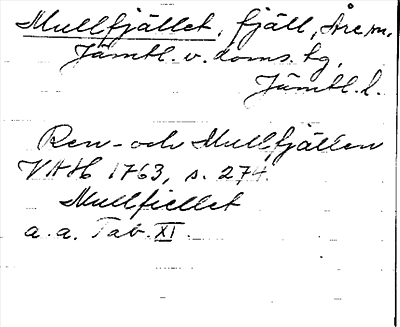 Mullfjället, fjäll, Åre sn.
Jämtl. v. doms. tg,
Jämtl. l.
Ren- och Mullfjällen
VAH 1763, s. 274
Mullfiellet
a. a. Tab. XI.